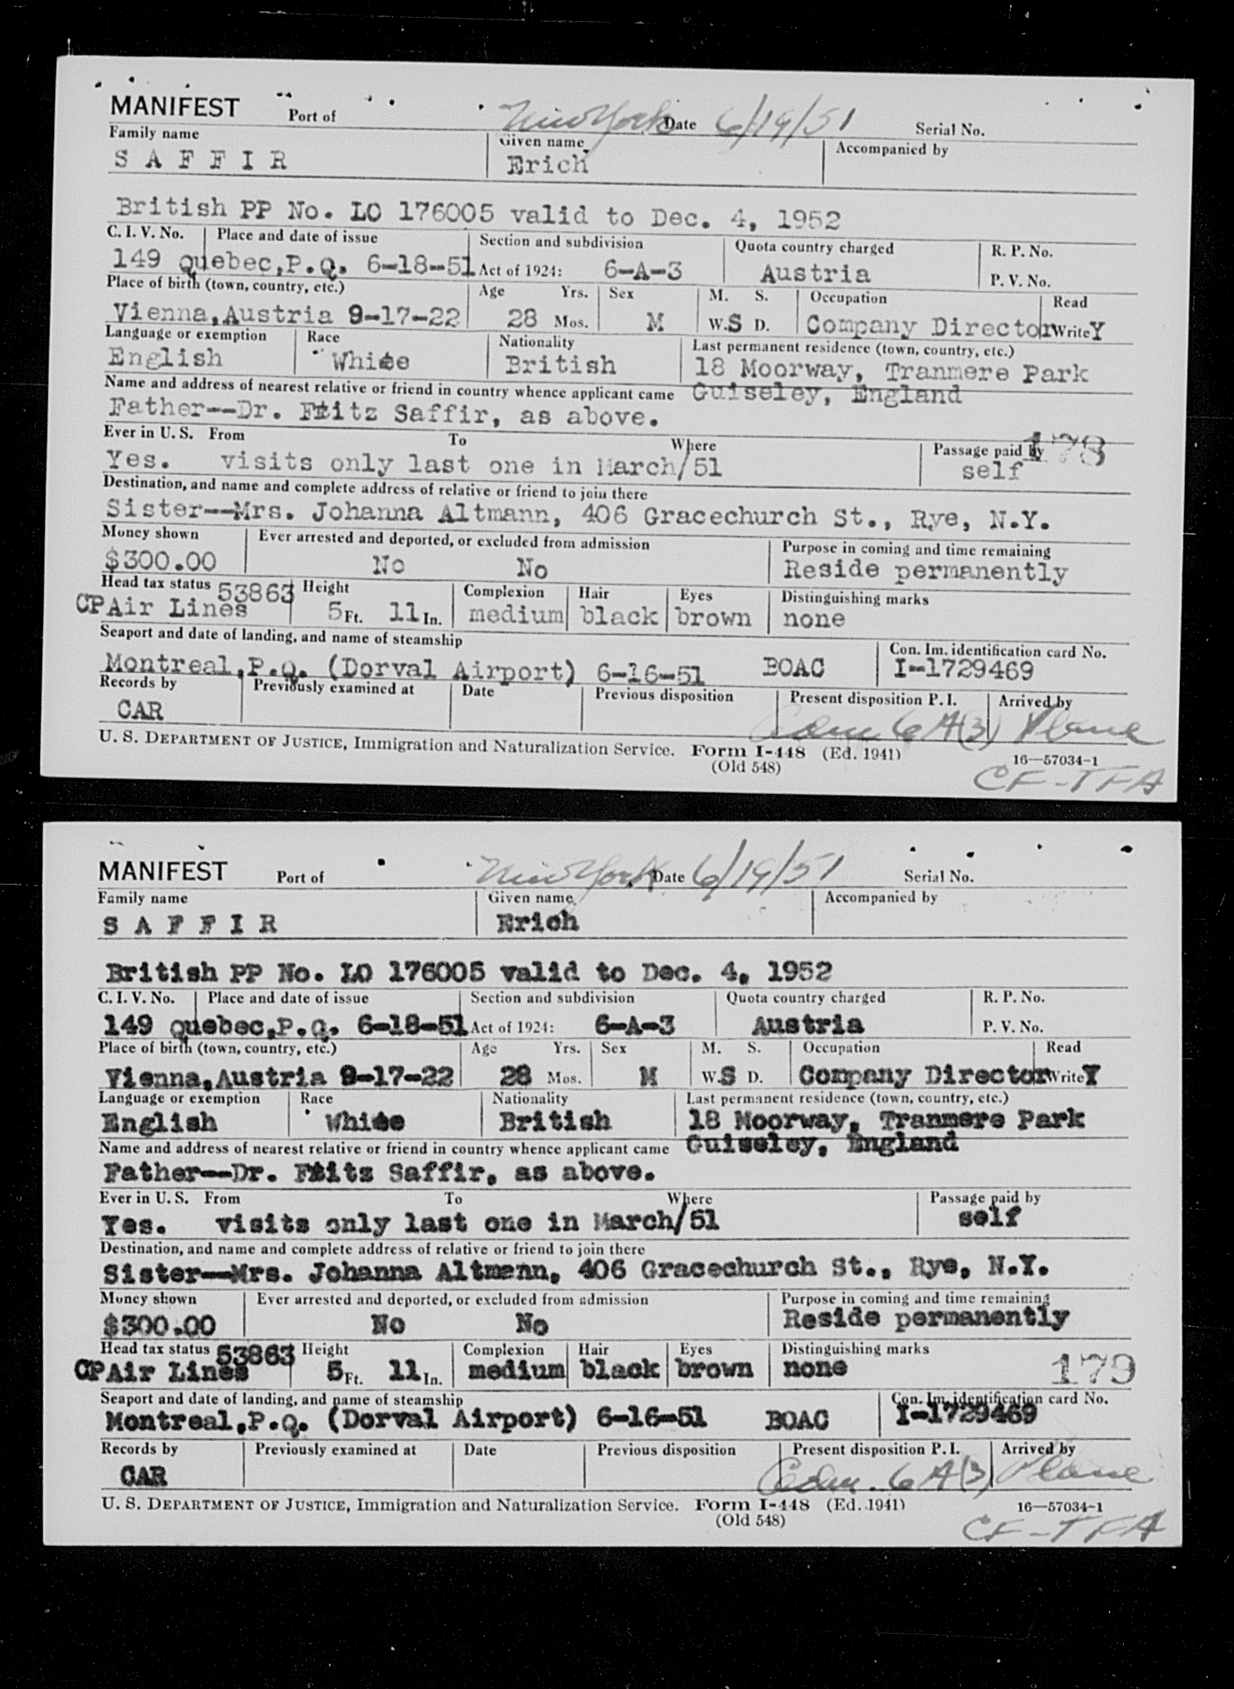 MANIFEST Port of New York Date 6/19/51 Serial No.
Family name Given name Accompanied by
S A F F I R Erich
British PP No. LO 176005 valid to Dec. 4, 1952
C. I. V. No. Place and date of issue Section and subdivision Quota country charged R. P. No.
149 quebec,P.Q. 6-18-51 Act of 1924: 6-A-3 Austria P. V. No.
Place of birth (town, country, etc.) Age Yrs. Sex M. S. Occupation Read
Vienna,Austria 9-17-22 28 Mos. M W.S D. Company Director Write Y
Language or exemption Race Nationality Last permanent residence (town, country, etc.)
English White British 18 Moorway, Tranmere Park
Name and address of nearest relative or friend in country whence applicant came Guiseley, England
Father--Dr. Fritz Saffir, as above.
Ever in U. S. From To Where Passage paid by 178
Yes. visits only last one in March/51 self
Destination, and name and complete address of relative or friend to join there
Sister--Mrs. Johanna Altmann, 406 Gracechurch St., Rye, N.Y.
Money shown Ever arrested and deported, or excluded from admission Purpose in coming and time remaining
$300.00 No No Reside permanently
Head tax status 53863 Height Complexion Hair Eyes Distinguishing marks
CPAir Lines 5 Ft. 11 In. medium black brown none
Seaport and date of landing, and name of steamship Con. Im. identification card No.
Montreal,P.Q. (Dorval Airport) 6-16-51 BOAC I-1729469
Records by Previously examined at Date Previous disposition Present disposition P. I. Arrived by
CAR Adm 6 A(3) Plane
U. S. DEPARTMENT OF JUSTICE, Immigration and Naturalization Service. Form I-448 (Ed. 1941) 16—57034-1
(Old 548) CF-TFA
MANIFEST Port of New York Date 6/19/51 Serial No.
Family name Given name Accompanied by
S A F F I R Erich
British PP No. LO 176005 valid to Dec. 4, 1952
C. I. V. No. Place and date of issue Section and subdivision Quota country charged R. P. No.
149 quebec,P.Q. 6-18-51 Act of 1924: 6-A-3 Austria P. V. No.
Place of birth (town, country, etc.) Age Yrs. Sex M. S. Occupation Read
Vienna,Austria 9-17-22 28 Mos. M W.S D. Company Director Write Y
Language or exemption Race Nationality Last permanent residence (town, country, etc.)
English White British 18 Moorway, Tranmere Park
Name and address of nearest relative or friend in country whence applicant came Guiseley, England
Father--Dr. Fritz Saffir, as above.
Ever in U. S. From To Where Passage paid by
Yes. visits only last one in March/51 self
Destination, and name and complete address of relative or friend to join there
Sister--Mrs. Johanna Altmann, 406 Gracechurch St., Rye, N.Y.
Money shown Ever arrested and deported, or excluded from admission Purpose in coming and time remaining
$300.00 No No Reside permanently
Head tax status 53863 Height Complexion Hair Eyes Distinguishing marks
CPAir Lines 5 Ft. 11 In. medium black brown none 179
Seaport and date of landing, and name of steamship Con. Im. identification card No.
Montreal,P.Q. (Dorval Airport) 6-16-51 BOAC I-1729469
Records by Previously examined at Date Previous disposition Present disposition P. I. Arrived by
CAR Adm. 6 A(3) Plane
U. S. DEPARTMENT OF JUSTICE, Immigration and Naturalization Service. Form I-448 (Ed. 1941) 16—57034-1
(Old 548) CF-TFA